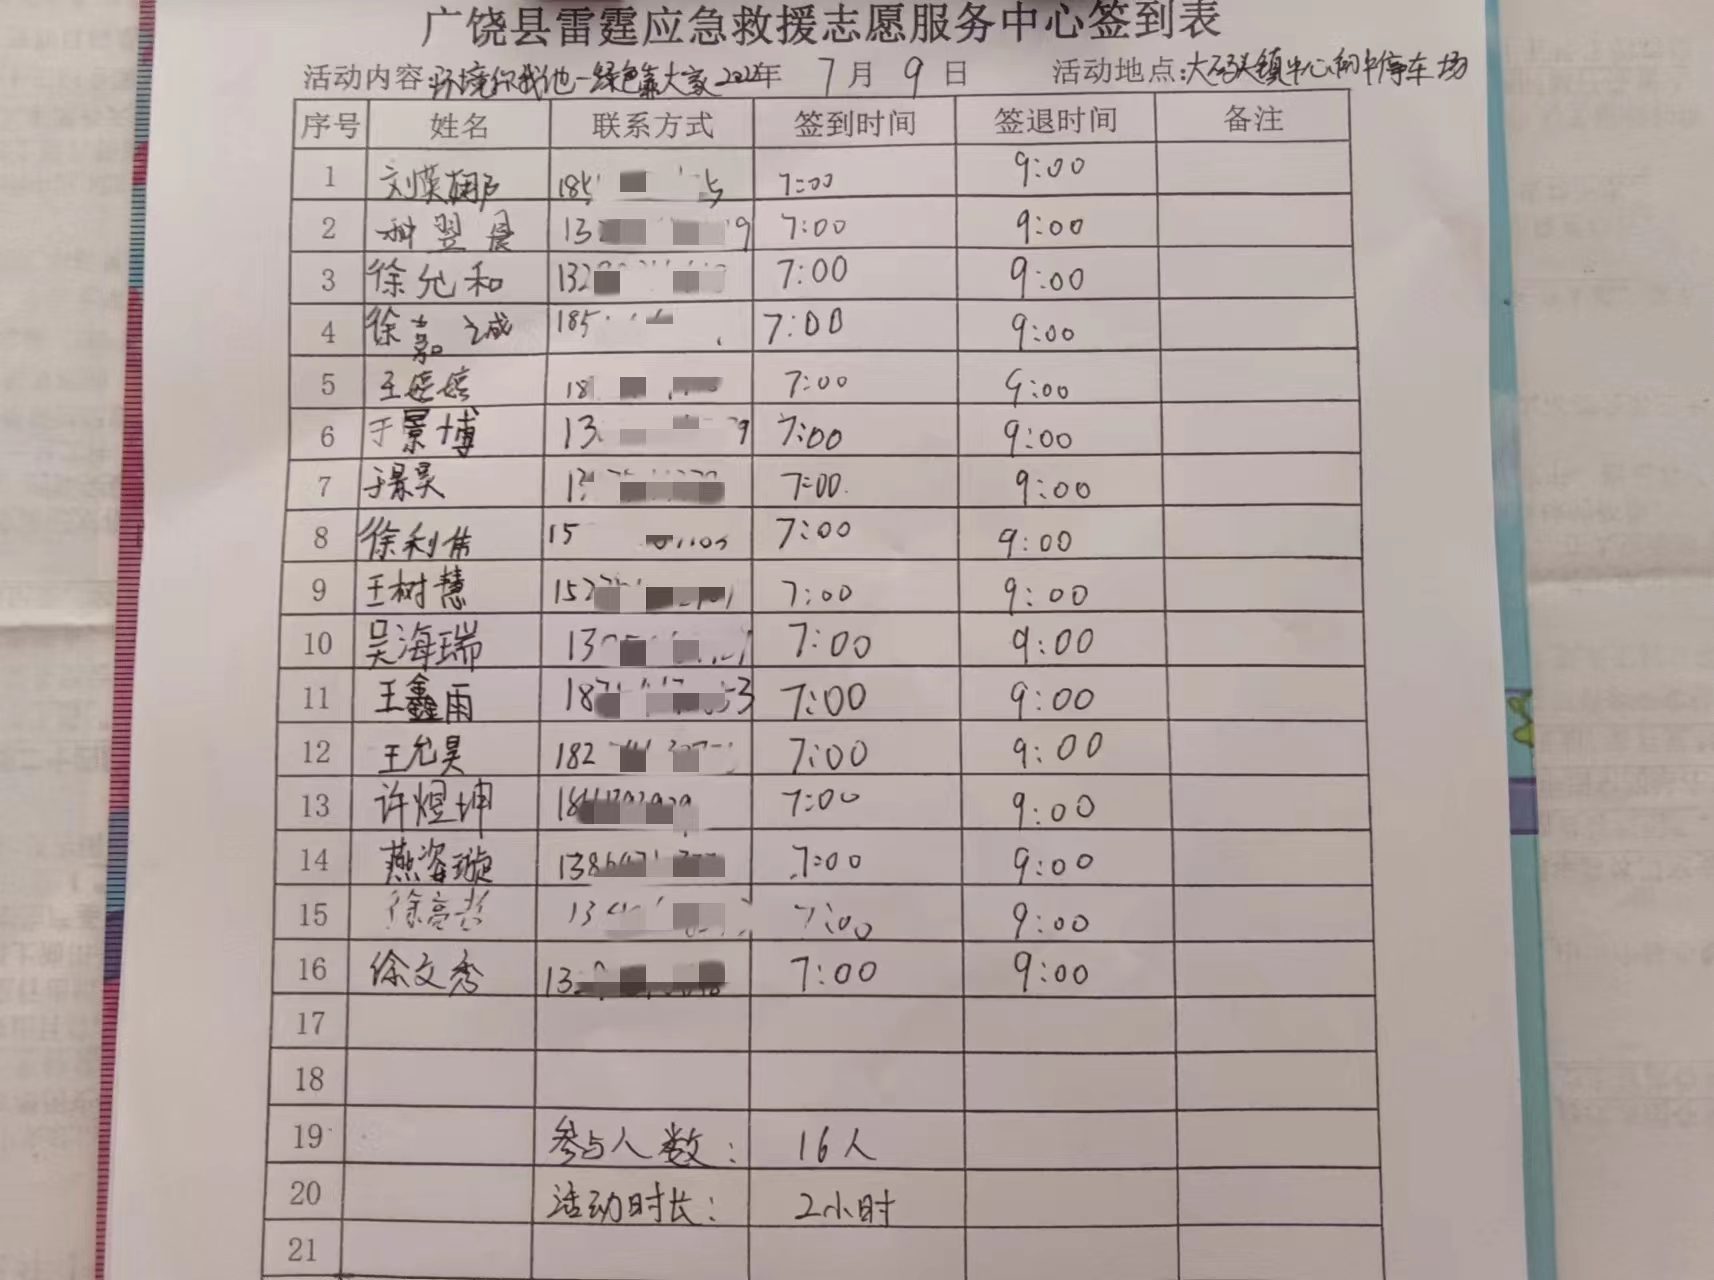 广饶县雷霆应急救援志愿服务中心签到表
活动内容:环境你我他一绿色靠大家2022年 7月 9日 活动地点:大码头镇中心初中停车场
序号 姓名 联系方式 签到时间 签退时间 备注
1 刘英娜 185 5 7:00 9:00
2 翌晨 13 9 7:00 9:00
3 徐允和 132 7:00 9:00
4 徐嘉诚 185 7:00 9:00
5 王婷婷 18 7:00 9:00
6 于景博 13 9 7:00 9:00
7 于景昊 13 7:00 9:00
8 徐利 15 7:00 9:00
9 王树慧 152 7:00 9:00
10 吴海瑞 13 7:00 9:00
11 王鑫雨 187 3 7:00 9:00
12 王允昊 182 7:00 9:00
13 许煜坤 18 7:00 9:00
14 燕姿璇 138 7:00 9:00
15 徐高彭 13 7:00 9:00
16 徐文秀 132 7:00 9:00
17
18
19 参与人数: 16人
20 活动时长: 2小时
21